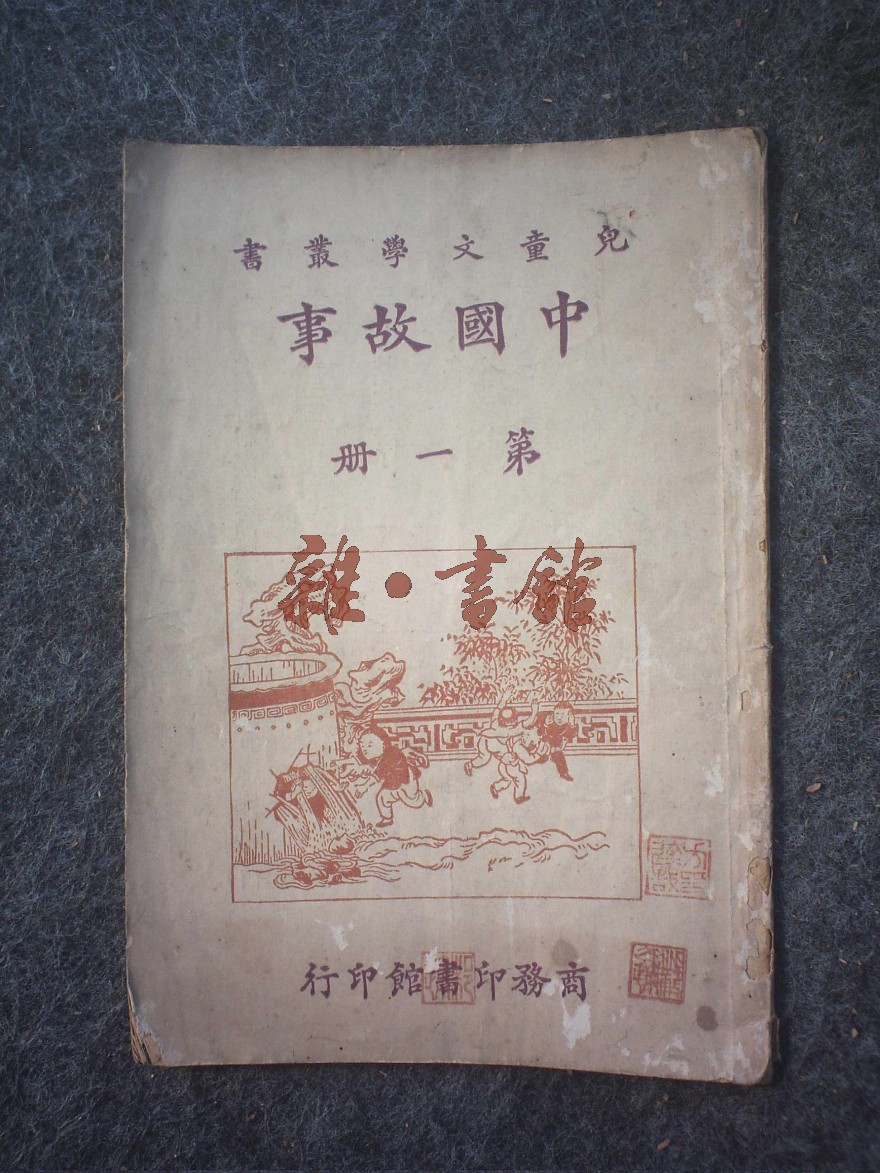 兒童文學叢書
中國故事
第一册
雜·書館
商務印書館印行